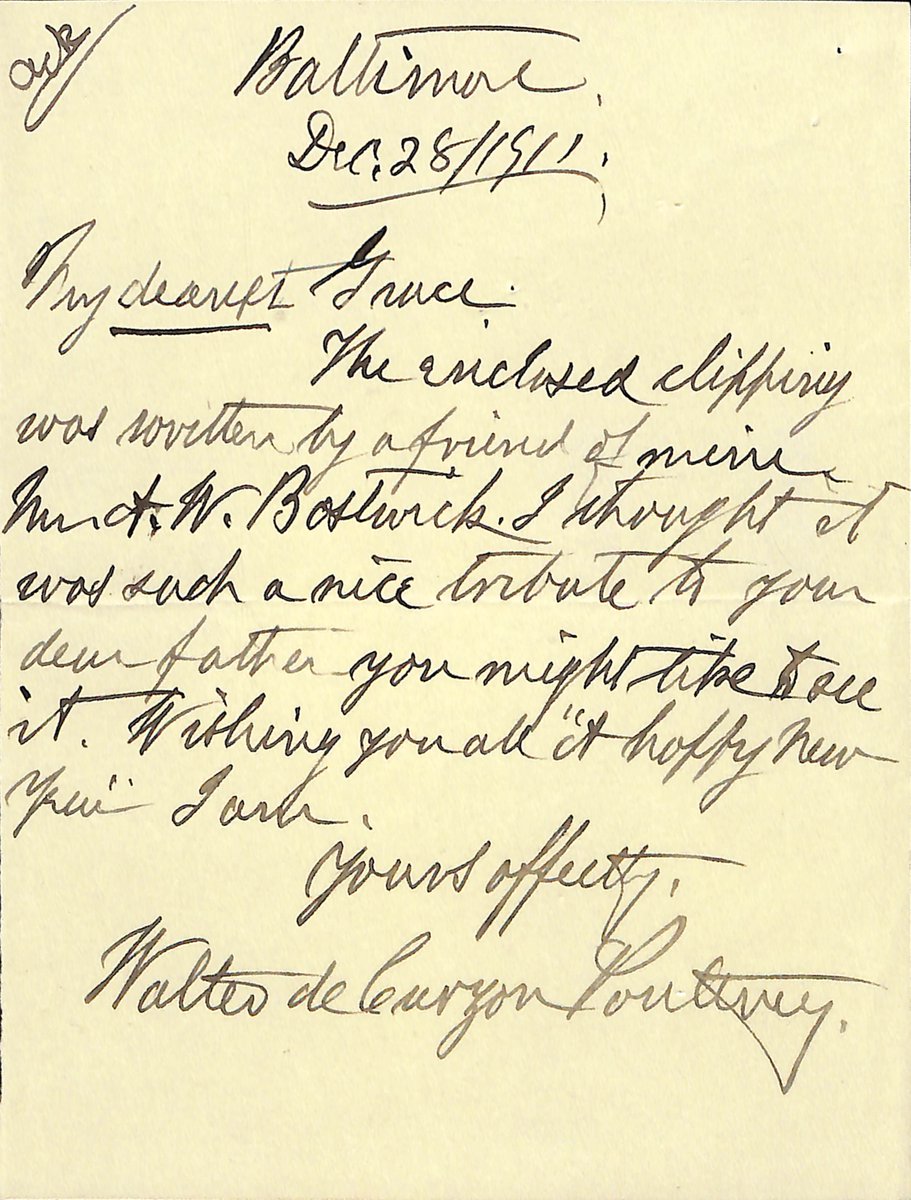 ack
Baltimore.
Dec. 28/1911.
My dearest Grace.
The enclosed clipping
was written by a friend of mine.
Mr. A. W. Bostwick. I thought it
was such a nice tribute to your
dear father you might like to see
it. Wishing you all "A happy New
Year" I am.
Yours affectly.
Walter de Curzon Poultney.